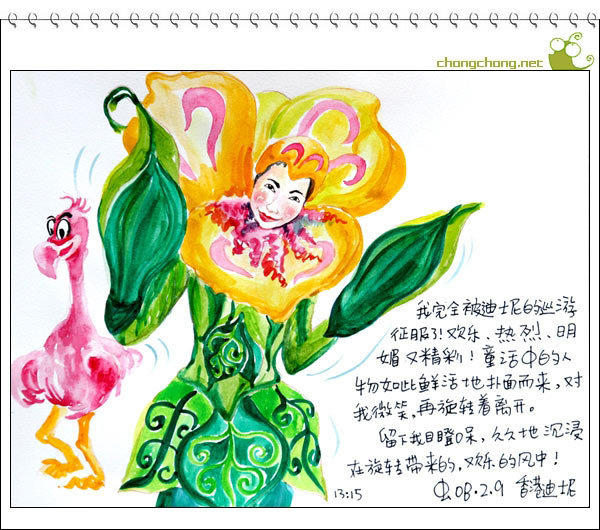 chongchong.net
我完全被迪士尼的巡游
征服了!欢乐、热烈、明
媚又精彩!童话中的人
物如此鲜活地扑面而来,对
我微笑,再旋转着离开。
留下我目瞪口呆,久久地沉浸
在旋转带来的,欢乐的风中!
13:15
虫 08.2.9 香港迪士尼